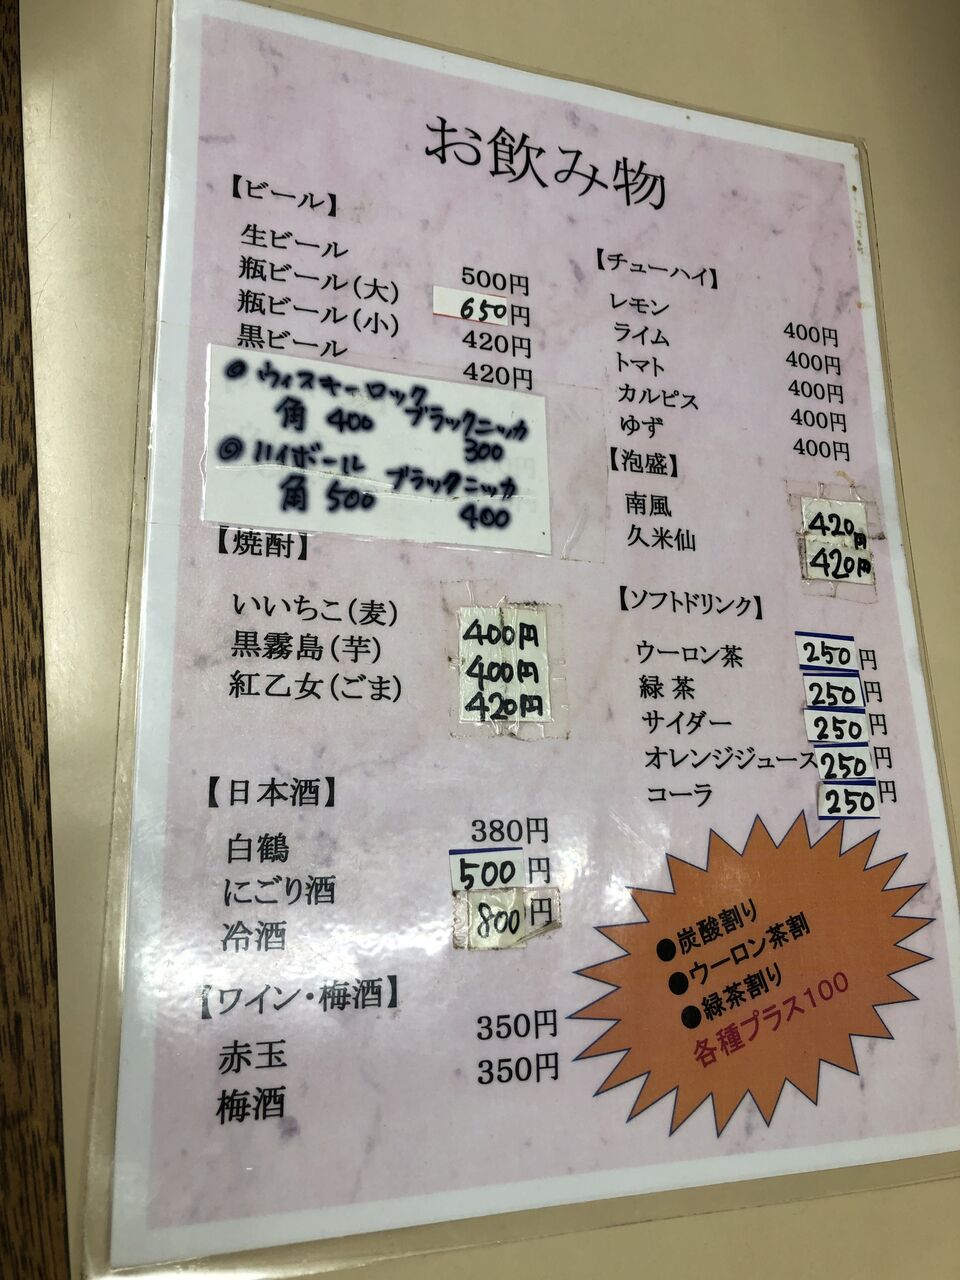 お飲み物
【ビール】
生ビール 500円
瓶ビール(大) 650円
瓶ビール(小) 420円
黒ビール 420円
◎ウィスキーロック
角 400 ブラックニッカ 300
◎ハイボール
角 500 ブラックニッカ 400
【焼酎】
いいちこ(麦) 400円
黒霧島(芋) 400円
紅乙女(ごま) 420円
【日本酒】
白鶴 380円
にごり酒 500円
冷酒 800円
【ワイン・梅酒】
赤玉 350円
梅酒 350円
【チューハイ】
レモン 400円
ライム 400円
トマト 400円
カルピス 400円
ゆず 400円
【泡盛】
南風 420円
久米仙 420円
【ソフトドリンク】
ウーロン茶 250円
緑茶 250円
サイダー 250円
オレンジジュース 250円
コーラ 250円
●炭酸割り
●ウーロン茶割
●緑茶割り
各種プラス100